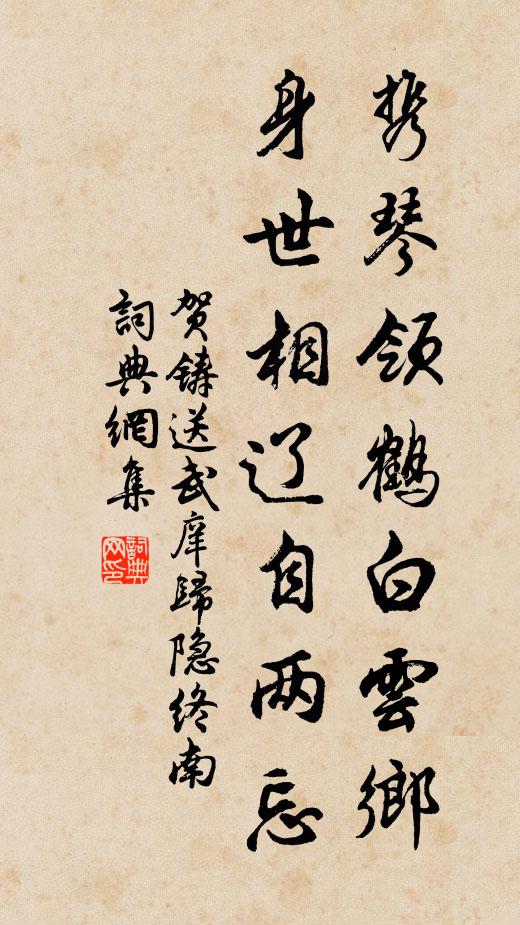 携琴领鹤白雲鄉
身世相辽自两忘
贺鑄送武庠歸隐终南
詞典網集
詞典网印